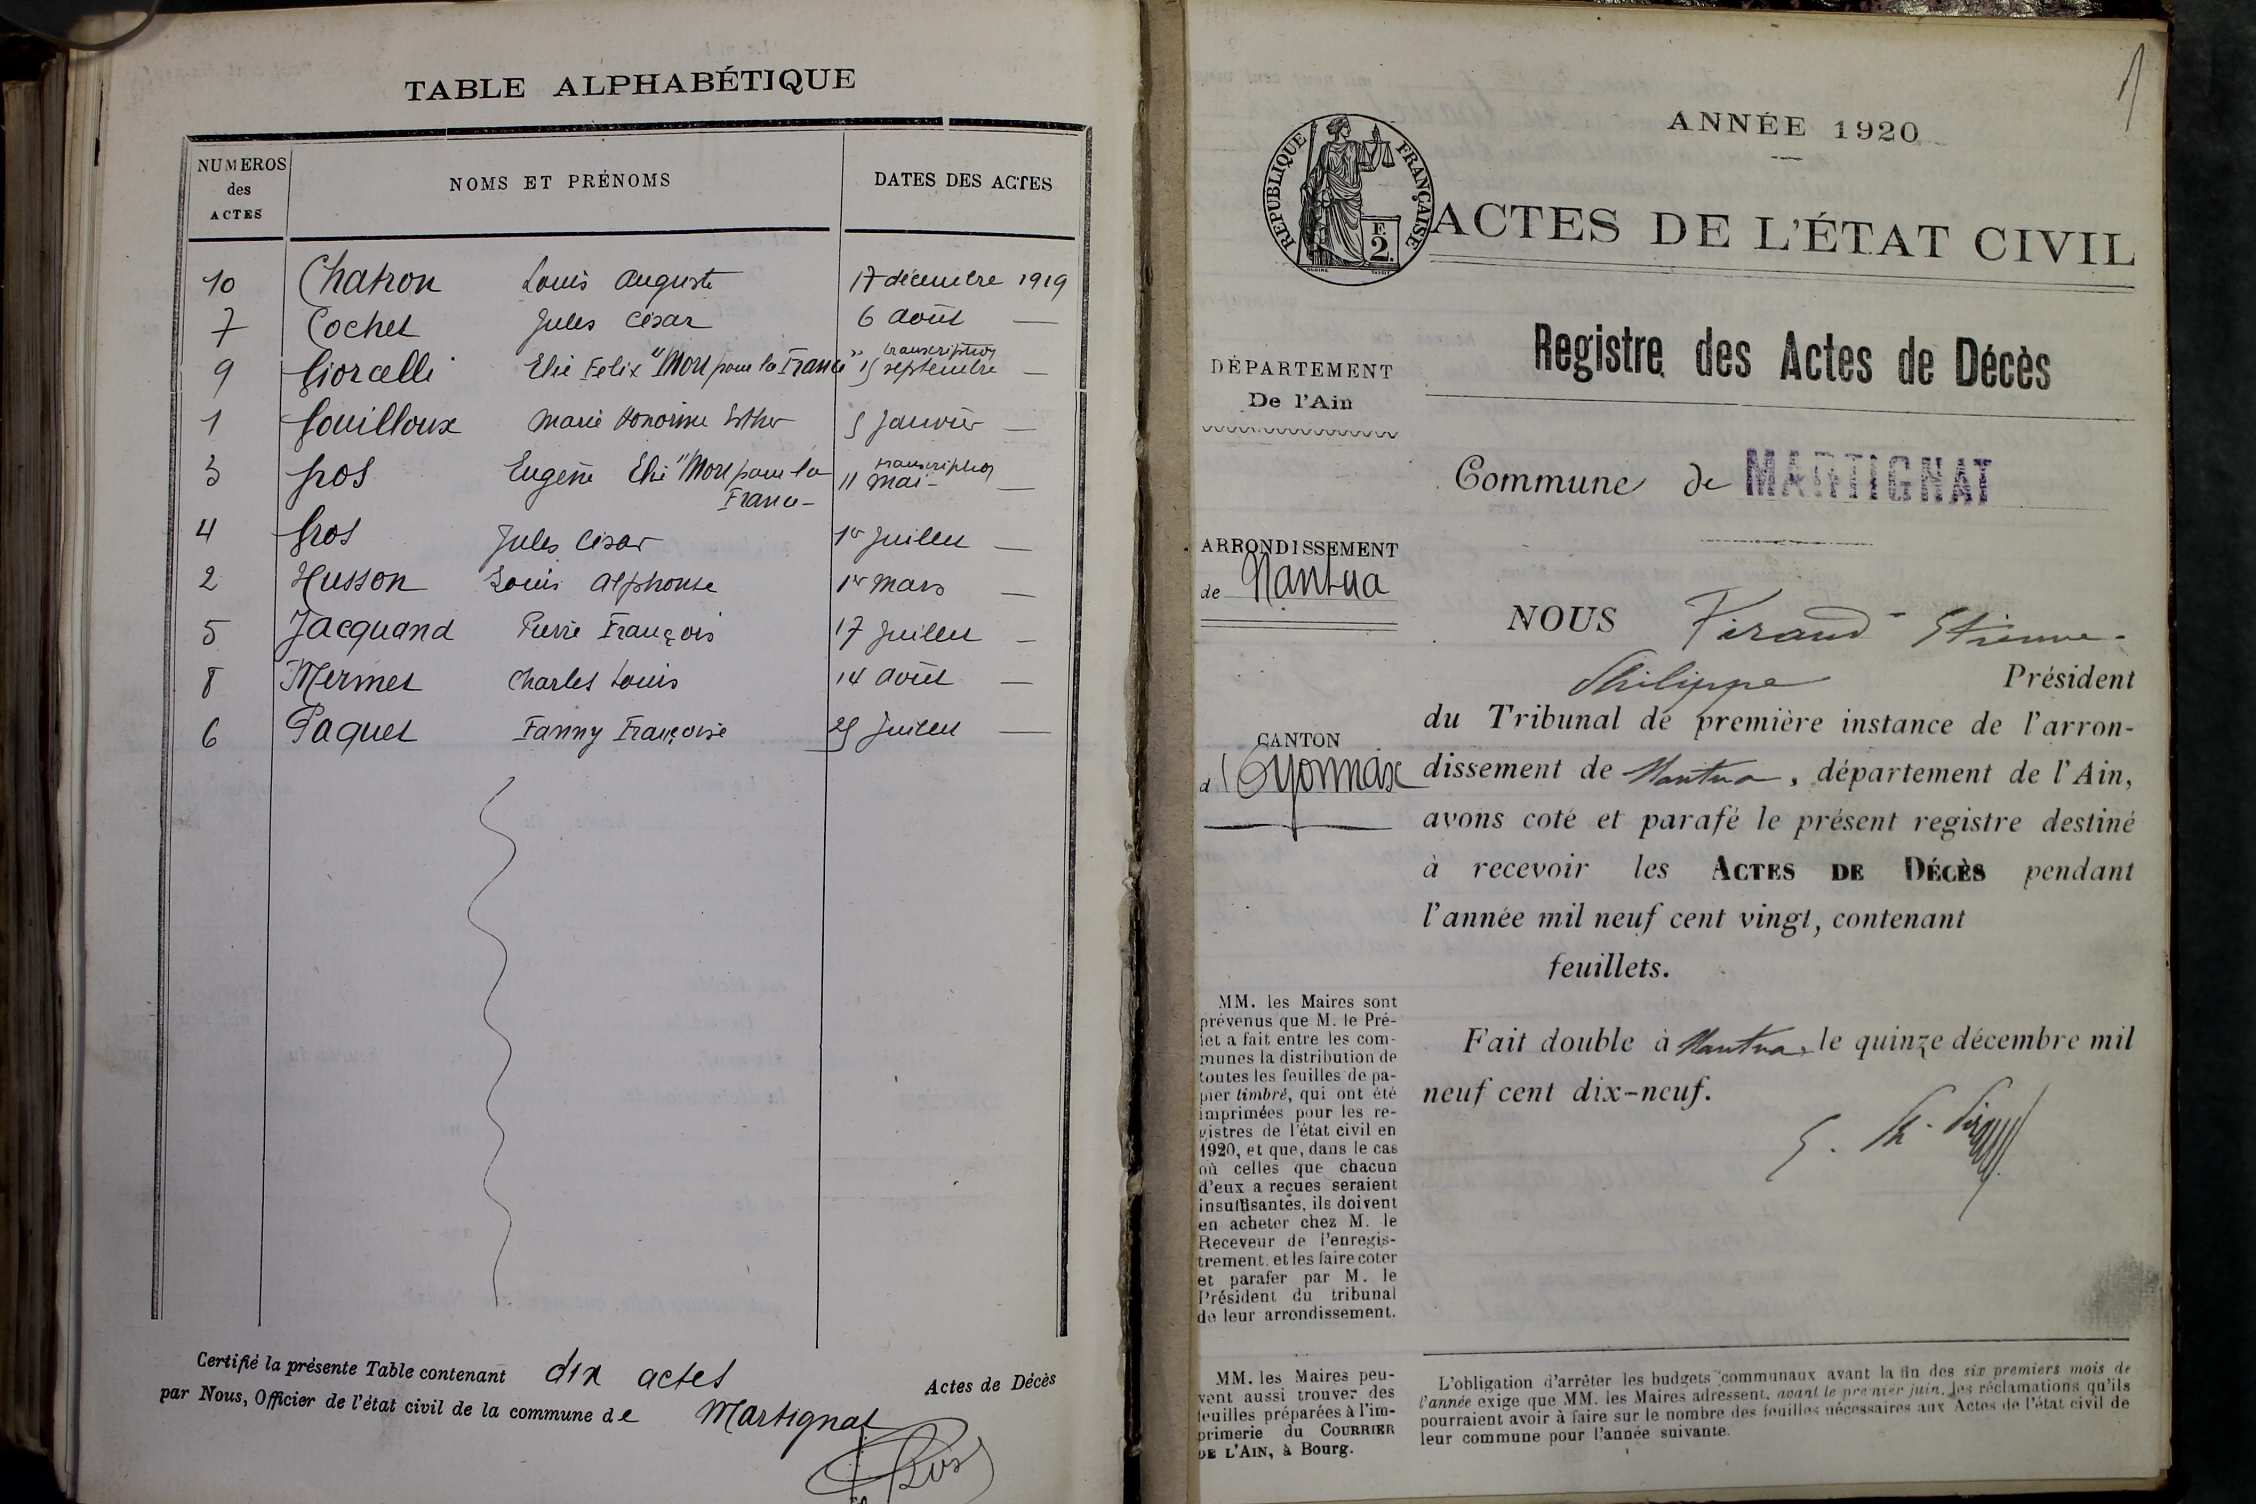 TABLE ALPHABÉTIQUE
NUMEROS des ACTES NOMS ET PRÉNOMS DATES DES ACTES
10 Chatron Louis Auguste 17 décembre 1919
7 Cochet Jules César 6 août —
9 Giorcelli Elie Felix "Mort pour la France" transcription 15 septembre —
1 Gouilloux Marie Honorine Esther 5 Janvier —
3 Gros Eugène Elie "Mort pour la France— transcription 11 Mai —
4 Gros Jules César 1er Juillet —
2 Husson Louis Alphonse 1er Mars —
5 Jacquand Pierre François 17 Juillet —
8 Mermet Charles Louis 14 août —
6 Paquet Fanny Françoise 25 Juillet —
Certifié la présente Table contenant dix actes Actes de Décès
par Nous, Officier de l'état civil de la commune de Martignat
Gros
1
ANNÉE 1920
RÉPUBLIQUE FRANÇAISE
F.
2.
ACTES DE L'ÉTAT CIVIL
Registre des Actes de Décès
DÉPARTEMENT
De l'Ain
Commune de MARTIGNAT
ARRONDISSEMENT
de Nantua
CANTON
d'Oyonnax
NOUS Piraud Etienne-
Philippe Président
du Tribunal de première instance de l'arron-
dissement de Nantua, département de l'Ain,
avons coté et parafé le présent registre destiné
à recevoir les ACTES DE DÉCÈS pendant
l'année mil neuf cent vingt, contenant
feuillets.
Fait double à Nantua, le quinze décembre mil
neuf cent dix-neuf.
E. Ph. Piraud
MM. les Maires sont
prévenus que M. le Pré-
fet a fait entre les com-
munes la distribution de
toutes les feuilles de pa-
pier timbré, qui ont été
imprimées pour les re-
gistres de l'état civil en
1920, et que, dans le cas
où celles que chacun
d'eux a reçues seraient
insuffisantes, ils doivent
en acheter chez M. le
Receveur de l'enregis-
trement. et les faire coter
et parafer par M. le
Président du tribunal
de leur arrondissement.
MM. les Maires peu-
vent aussi trouver des
feuilles préparées à l'im-
primerie du COURRIER
DE L'AIN, à Bourg.
L'obligation d'arrêter les budgets communaux avant la fin des six premiers mois de
l'année exige que MM. les Maires adressent, avant le premier juin, les réclamations qu'ils
pourraient avoir à faire sur le nombre des feuilles nécessaires aux Actes de l'état civil de
leur commune pour l'année suivante.